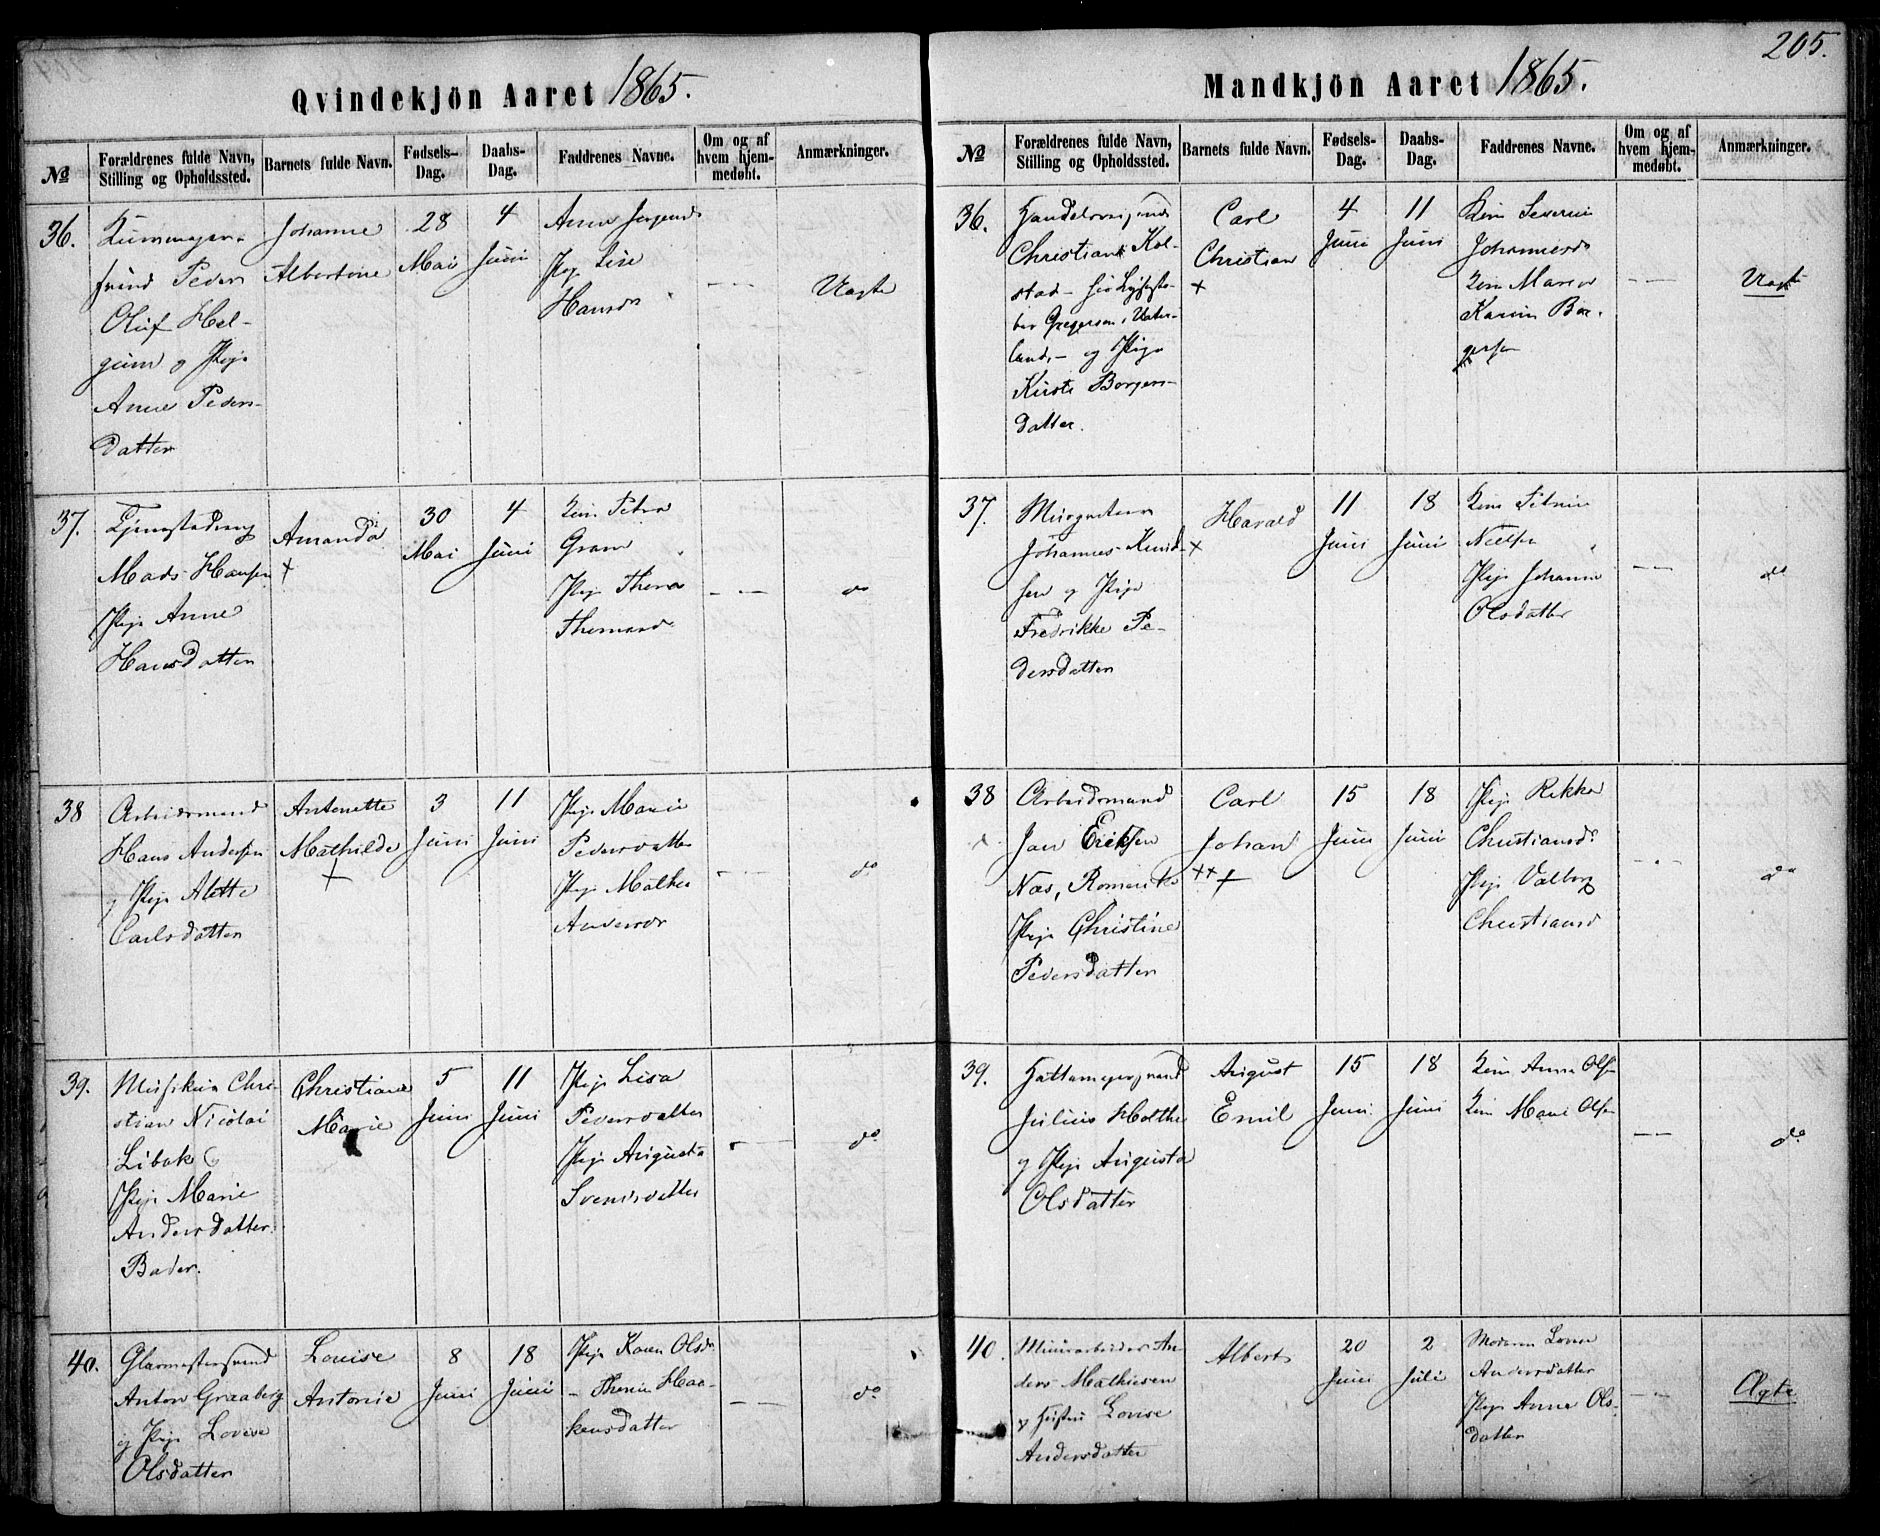 Qvindekjön Aaret 1865.
№
Forældrenes fulde Navn, Stilling og Opholdssted.
Barnets fulde Navn.
Fødsels-Dag.
Daabs-Dag.
Faddrenes Navne.
Om og af hvem hjem-medøbt.
Anmærkninger.
36.
Peder
Oluf Hel-
gum og Pige
Anne Peders-
datter
Johanne
Albertine
28
Mai
4
Juni
Anne
Pige Lise
Hansd
Uægte
37.
Mads Hansen
Pige Anne
Hansdatter
Amanda
+
30
Mai
4
Juni
Petra
Gram
Pige Thora
do
38
Arbeidsmand
Hans Andersen
og Pige Alette
Carlsdatter
Antonette
Mathilde
+
3
Juni
11
Juni
Pige Marie
Pedersdatter
Pige Mathea
do
39.
Musikus Chri-
stian Nicolai
Libak
Pige Marie
Andersdatter
Christiane
Marie
5
Juni
11
Juni
Pige Lisa
Pedersdatter
Pige Augusta
Svensdatter
do
40.
Glarmestersvend
Anton Graaberg
og Pige Lovise
Olsdatter
Louise
Antonie
8
Juni
18
Juni
Pige Karen Olsd
Haa-
kensdatter
do
205.
Mandkjön Aaret 1865.
№
Forældrenes fulde Navn, Stilling og Opholdssted.
Barnets fulde Navn.
Fødsels-Dag.
Daabs-Dag.
Faddrenes Navne.
Om og af hvem hjem-medøbt.
Anmærkninger.
36.
Christian Kol-
stad
Gregersen, Vater-
land, og Pige
Borgers-
datter.
Carl
Christian
+
4
Juni
11
Juni
Severin
Johannesd
Karin Bor-
gersen
Uægte
37.
Johannes Knud-
sen og Pige
Fredrikke Pe-
dersdatter
Harald
+
11
Juni
18
Juni
Nielsen
Pige Johanne
Olsdatter
do
38
Arbeidsmand
Jan Eriksen
Næs, Romerike
Pige Christine
Pedersdatter
Carl
Johan
+++
15
Juni
18
Juni
Pige Rikka
Christiansd
Pige Valborg
Christiansd
do
39.
Hattemagersvend
Julius Holthe
og Pige Augusta
Olsdatter
August
Emil
15
Juni
18
Juni
Anna Olsen
Marie Olsen
do
40.
Minerarbeider An-
ders Mathiesen
og Hustru Lovise
Andersdatter
Albert
20
Juni
2
Juli
Moderen Lovise
Andersdatter
Pige Anne Ols-
datter
Ægte